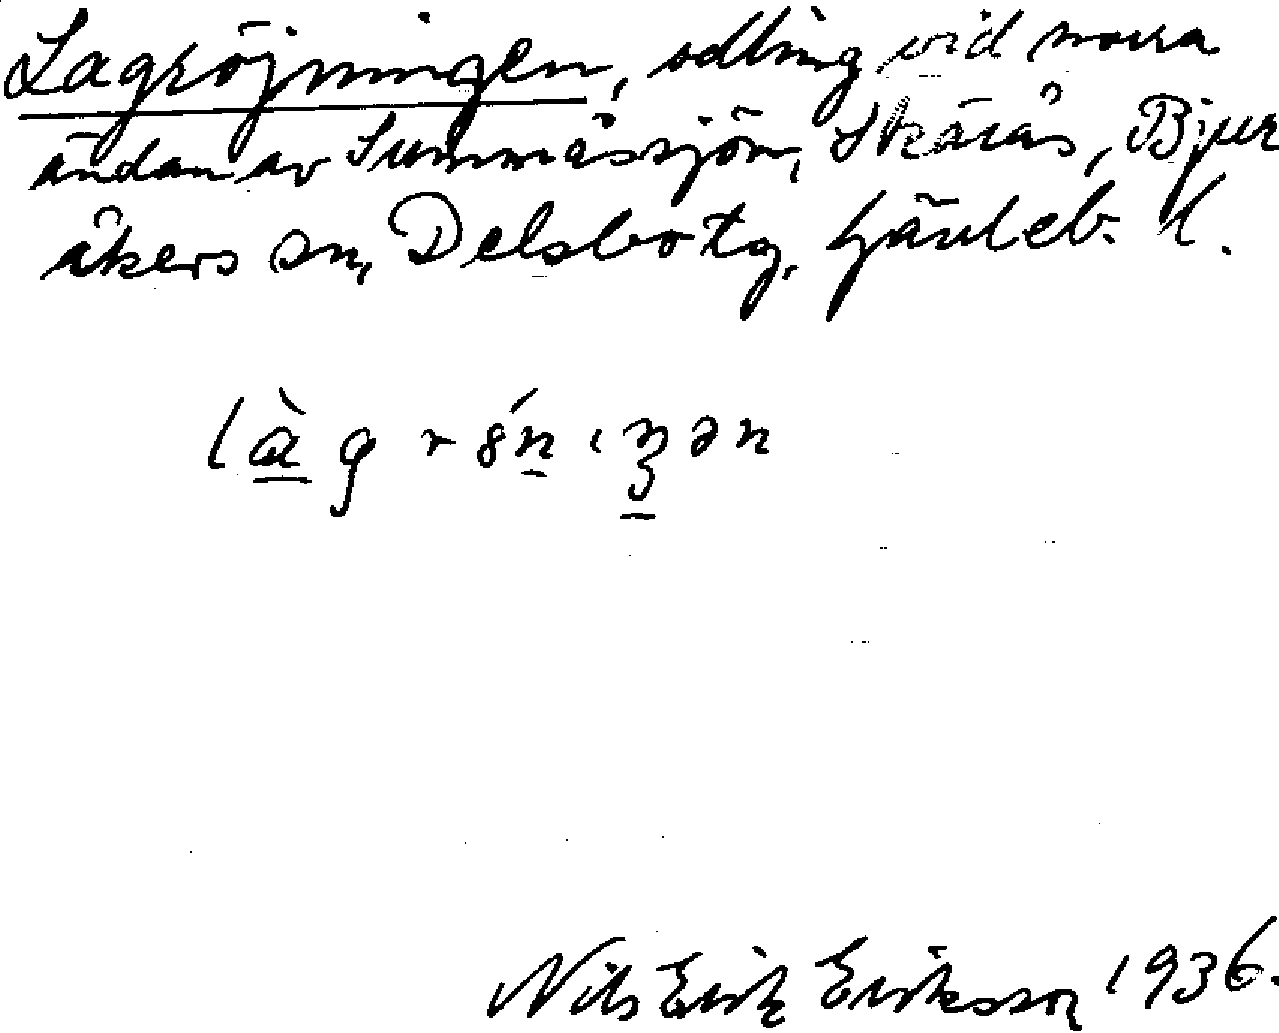 Lagröjningen, odling vid norra
ändan av Summåssjön, Skärås, Bjur
åkers sn, Delsbo tg, Gävleb. l.
là̱g rǿṉıŋ̱ən
Nils Erik Eriksson 1936.